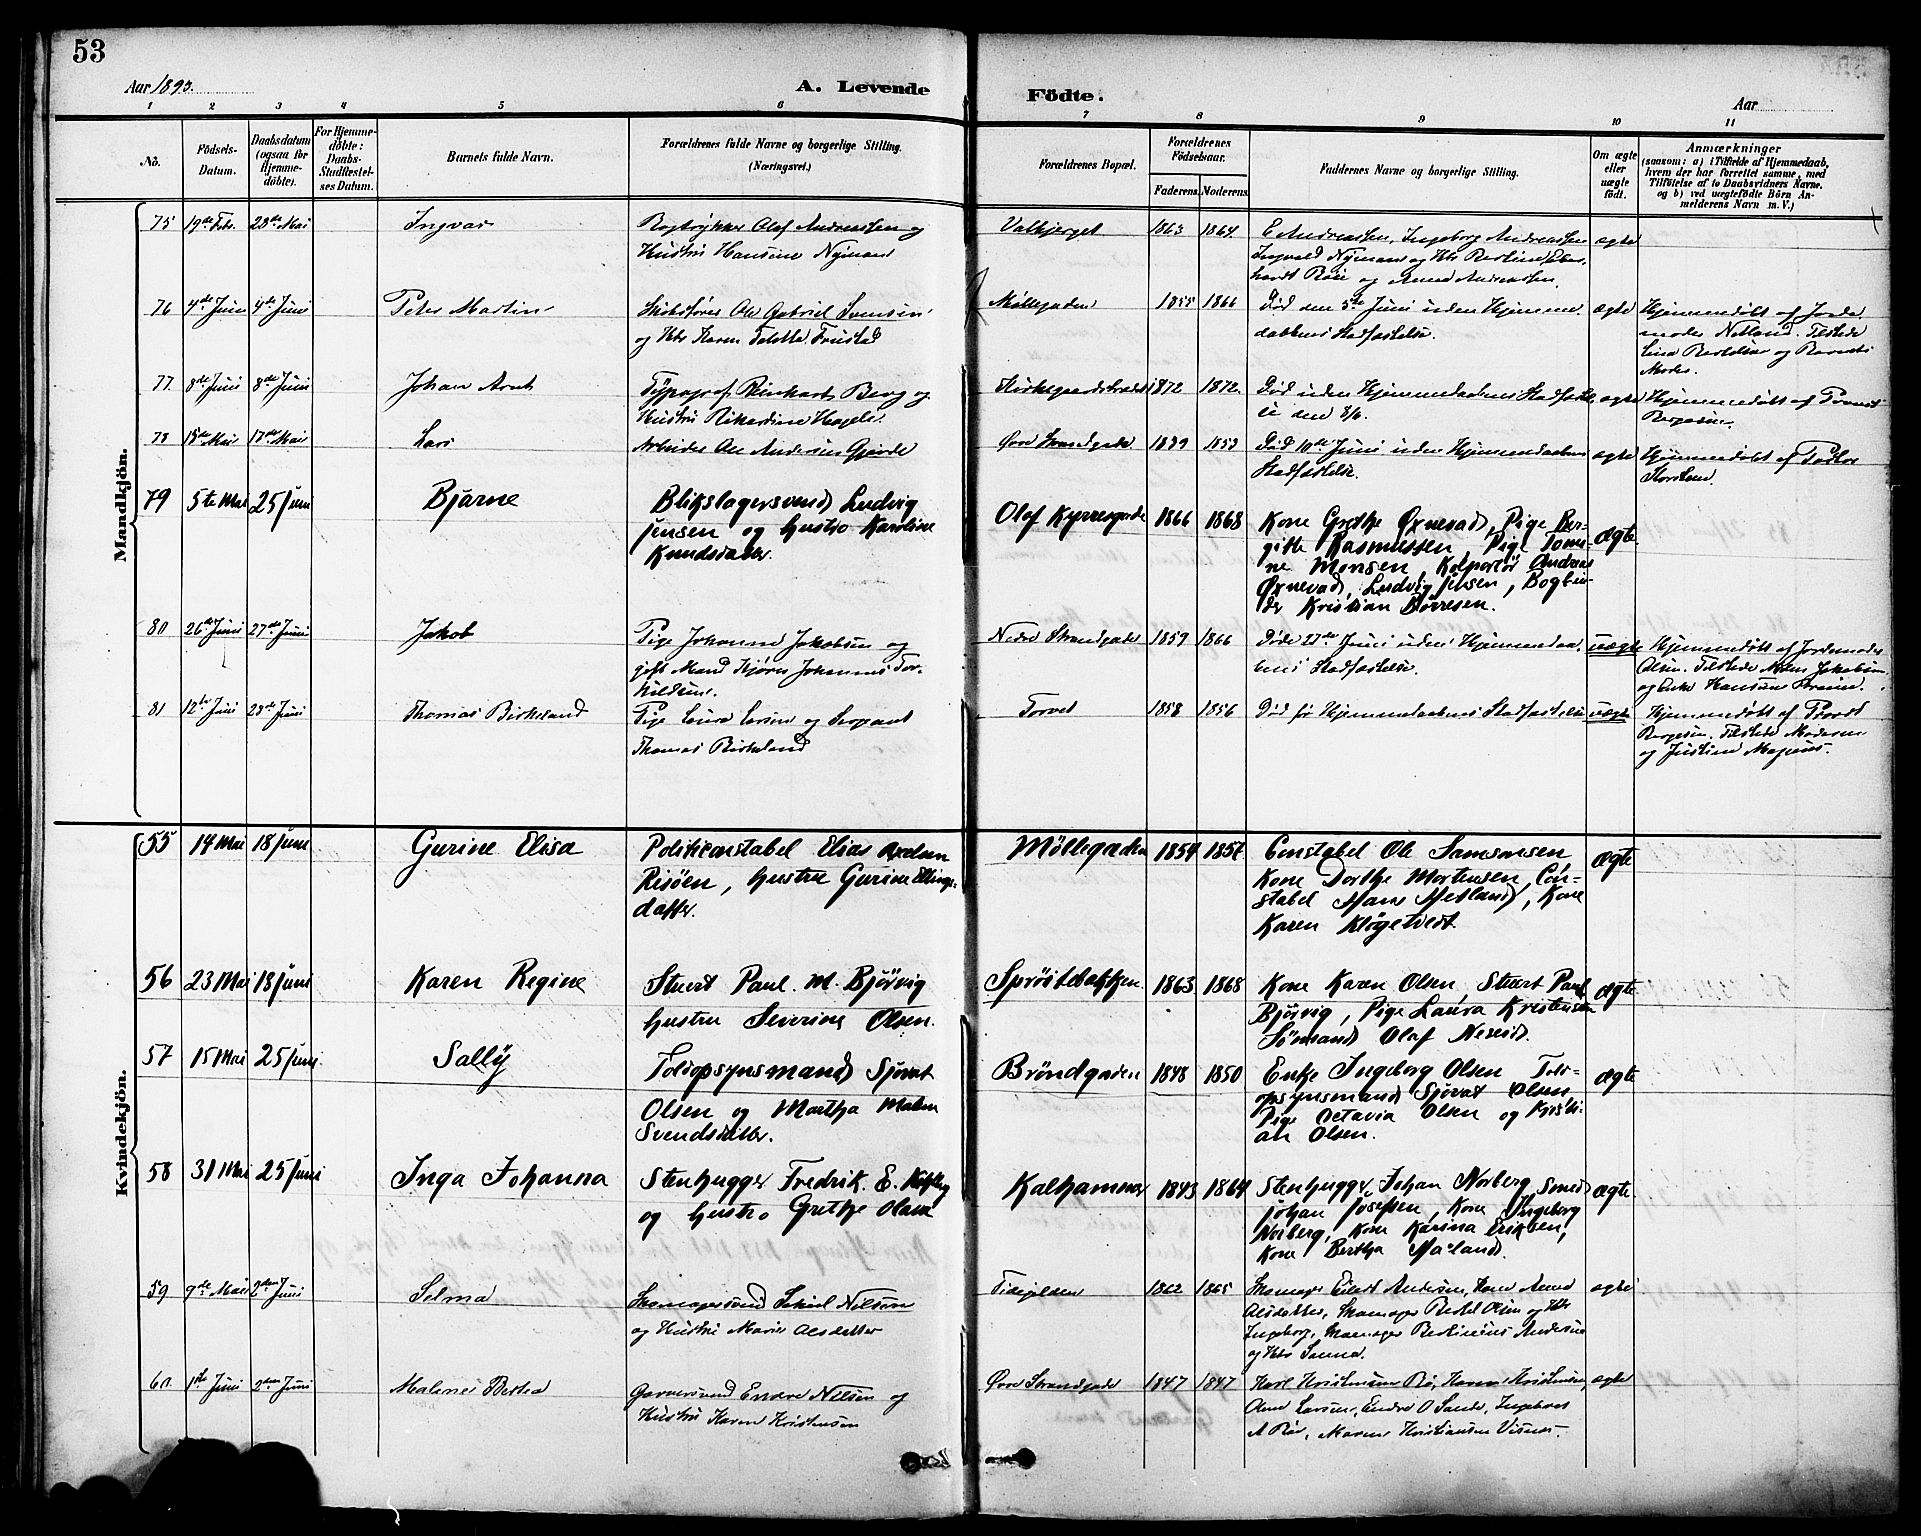 53
Aar 1893.
A. Levende
Födte.
Aar
1 2 3 4 5 6 7 8 9 10 11
No.
Födsels-
Datum.
Daabsdatum
(ogsaa for
Hjemme-
döbte).
For Hjemme-
döbte:
Daabs-
Stadfæstel-
ses Datum.
Barnets fulde Navn.
Forældrenes fulde Navne og borgerlige Stilling.
(Næringsvei.)
Forældrenes Bopæl.
Forældrenes
Födselsaar.
Faderens. Moderens.
Faddernes Navne og borgerlige Stilling.
Om ægte
eller
uægte
født.
Anmærkninger
(saasom: a) i Tilfælde af Hjemmedaab,
hvem der har forrettet samme, med
Tilföielse af to Daabsvidners Navne,
og b) ved uægtefödte Börn An-
melderens Navn m. V.)
Mandkjön.
75 19de Febr. 28de Mai Ingvar
Olaf Andreassen og
Hustru Hansine Nyman
Valbjerget 1863 1864
E Andreassen, Ingeborg Andreassen
Ingvald Nyman og
og Anna Andreassen.
ægte
76 4de Juni 4de Juni Peter Martin
Ole Gabriel Svensen
og Hts Karen
Møllegaden 1855 1866
Død den 5te Juni uden Hjemme
daabens Stadfæstelse.
ægte
Hjemmedøbt af Jorde
moder Netland. Tilstede
og Barnets
Moder.
77. 8de Juni 8de Juni Johan Arnt
Typograf Reinhart Berg og
Hustru
Kirkegaardstrædet 1872 1872.
Død uden Hjemmedaabens Stadfæstel
Hjemmedøbt af Provst
ægte
78 15de Mai 17de Mai Lars
Arbeider Ole Andersen Gjerde
Øvre Strandgade 1839 1853
Død 10de Juni uden Hjemmedaabens
Stadfæstelse.
ægte
Hjemmedøbt af
79 5te Mai 25 Juni Bjarne
Blikslagersvend Ludvig
Jensen og Hustro Karoline
Knudsdatter.
Olaf Kyrresgade 1866 1868
Kone Grethe Øxnevad, Pige Ber-
gitte Rasmussen, Pige Tomi-
ne Monsen, Kolportør Andreas
Øxnevad, Ludvig Jensen, Bogbin-
der Kristian Børresen.
ægte.
80 26de Juni 27de Juni Jakob
Pige Johanne Jakobsen og
gift Mand Johannes Tor-
kildsen.
Nedre Strandgade 1859 1866
Døde 27de Juni uden Hjemmedaa
bens Stadfæstelse.
uægte
Hjemmedøbt af Jordemoder
Olsen. Tilstede Jakobsen
og Enke
81 12te Juni 23de Juni Thomas Birkeland
Pige Laura Larsen og Sergeant
Thomas Birkeland
Torvet 1858 1856
Død før Hjemmedaabens Stadfæstelse
uægte
Hjemmedøbt af Provst
Tilstede Moderen
og Justine Magnus.
Kvindekjön.
55 14 Mai 18 Juni Gurine Elisa
Politikonstabel Elias Axelsen
Risöen, Hustru Gurine Ellings-
datter.
Møllegaden 1854 1856
Constabel Ole Samsonsen
Kone Dorthe Mortensen, Con-
stabel Hans Hetland, Kone
Karen Kløgetvedt
ægte
56 23 Mai 18 Juni Karen Regine
Stuert Paul. M. Bjørvig
Hustru Severine Olsen.
Sprøitebakken 1863 1868
Kone Karen Olsen Stuert Paul
Bjørvig, Pige Laura Kristensen
Sømand Olaf Neseid.
ægte
57 15 Mai 25 Juni. Sally
Toldopsynsmand Sjovat
Olsen og Martha Malene
Svendsdatter.
Brøndgaden 1848 1850
Enke Ingeborg Olsen Told-
opsynsmand Sjovat Olsen
Pige Octavia Olsen og Kristi-
an Olsen.
ægte
58 31 Mai 25 Juni Inga Johanna
Stenhugger Fredrik. E.
og Hustro Grethe Olsen
Kalhammer 1843 1864
Stenhugger Johan Norberg, Smed
Johan Josefsen, Kone Ingeborg
Norberg, Kone Karina Eriksen,
Kone Bertha Maland.
ægte.
59 9de Mai 2den Juni Selma
Skomagersvend Nilsen
og Hustru Marie Olsdatter
Tidegilden 1862 1865
Skomager Eilert Andersen, Kone Anna
Olsdatter, Skomager Bertel Olsen og Hts
Ingeborg, Skomager Andersen
og Hts
ægte
60. 1ste Juni 2den Juni Malene Bertea
Garversvend Endre Nilsen og
Hustru Karen Kristensen
Øvre Strandgade 1847 1847
Karl Kristensen Bø, Karen Kristensen,
Larsen, Endre O Sande, Ingeborg
A Bø, Maren Kristiansen
ægte